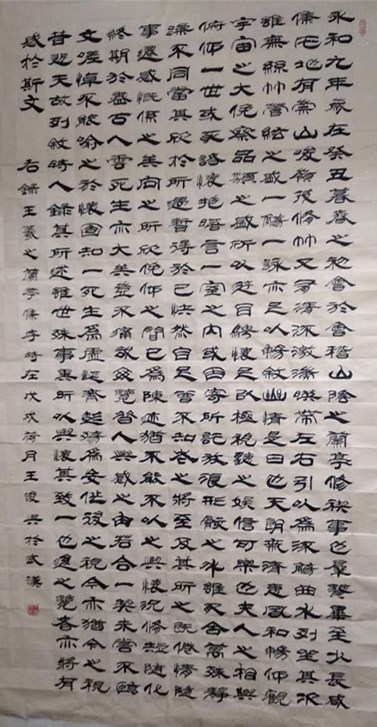 永和九年歲在癸丑暮春之初會於會稽山陰之蘭亭修禊事也群賢畢至少長咸
集此地有崇山峻領茂修竹又有清流激湍映帶左右引以為流觴曲水列坐其次
雖無絲竹管絃之盛一觴一詠亦足以暢敘幽情是日也天朗氣清惠風和暢仰觀
宇宙之大俯察品類之盛所以遊目騁懷足以極視聽之娛信可樂也夫人之相與
俯仰一世或取諸懷抱晤言一室之內或因寄所託放浪形骸之外雖趣舍萬殊靜
躁不同當其欣於所遇暫得於己快然自足曾不知老之將至及其所之既倦情隨
事遷感慨係之矣向之所欣俯仰之間已為陳迹猶不能不以之興懷況修短隨化
終期於盡古人云死生亦大矣豈不痛哉每覽昔人興感之由若合一契未嘗不臨
文嗟悼不能喻之於懷固知一死生為虛誕齊彭殤為妄作後之視今亦猶今之視
昔悲夫故列敘時人錄其所述雖世殊事異所以興懷其致一也後之覽者亦將有
感於斯文
右錄王羲之蘭亭集序時在戊戌荷月王俊於武漢